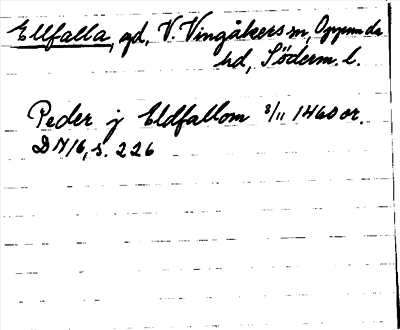 Ellfalla, gd, V. Vingåkers sn, Oppunda
hd, Söderm. l.
Peder j Eldfallom 3/11 1460 or.
DN 16, s. 226